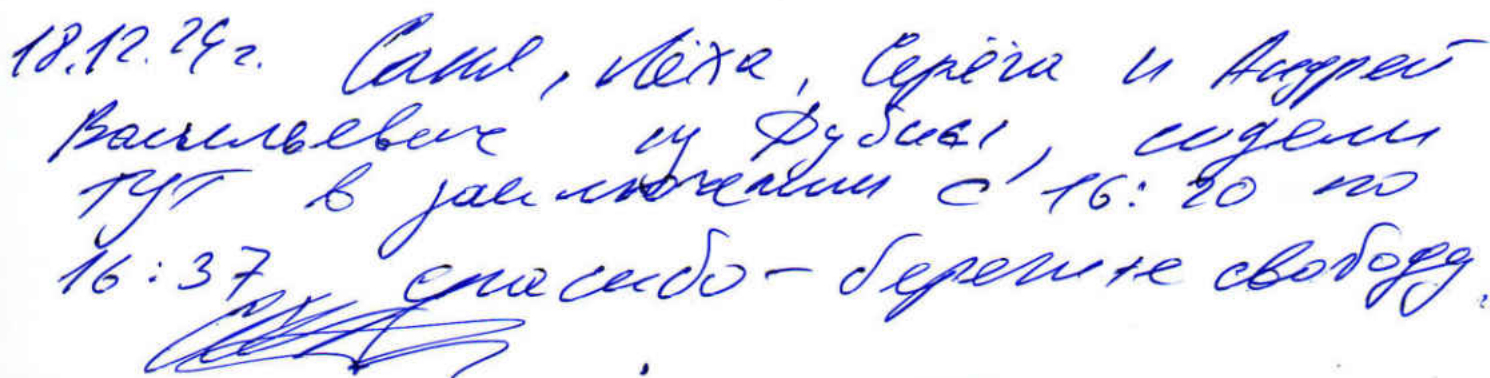 18.12.24г. Саня, Лёха, Серёга и Андрей
Васильевич из Дубны, сидели
тут в заключении с 16:20 по
16:37, спасибо - берегите свободу.